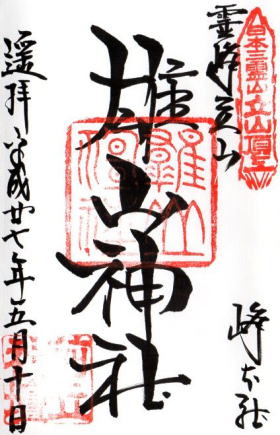 日本三霊山立山頂上
霊峰立山
峰本社
雄山神社
遥拝
平成廿七年五月十日